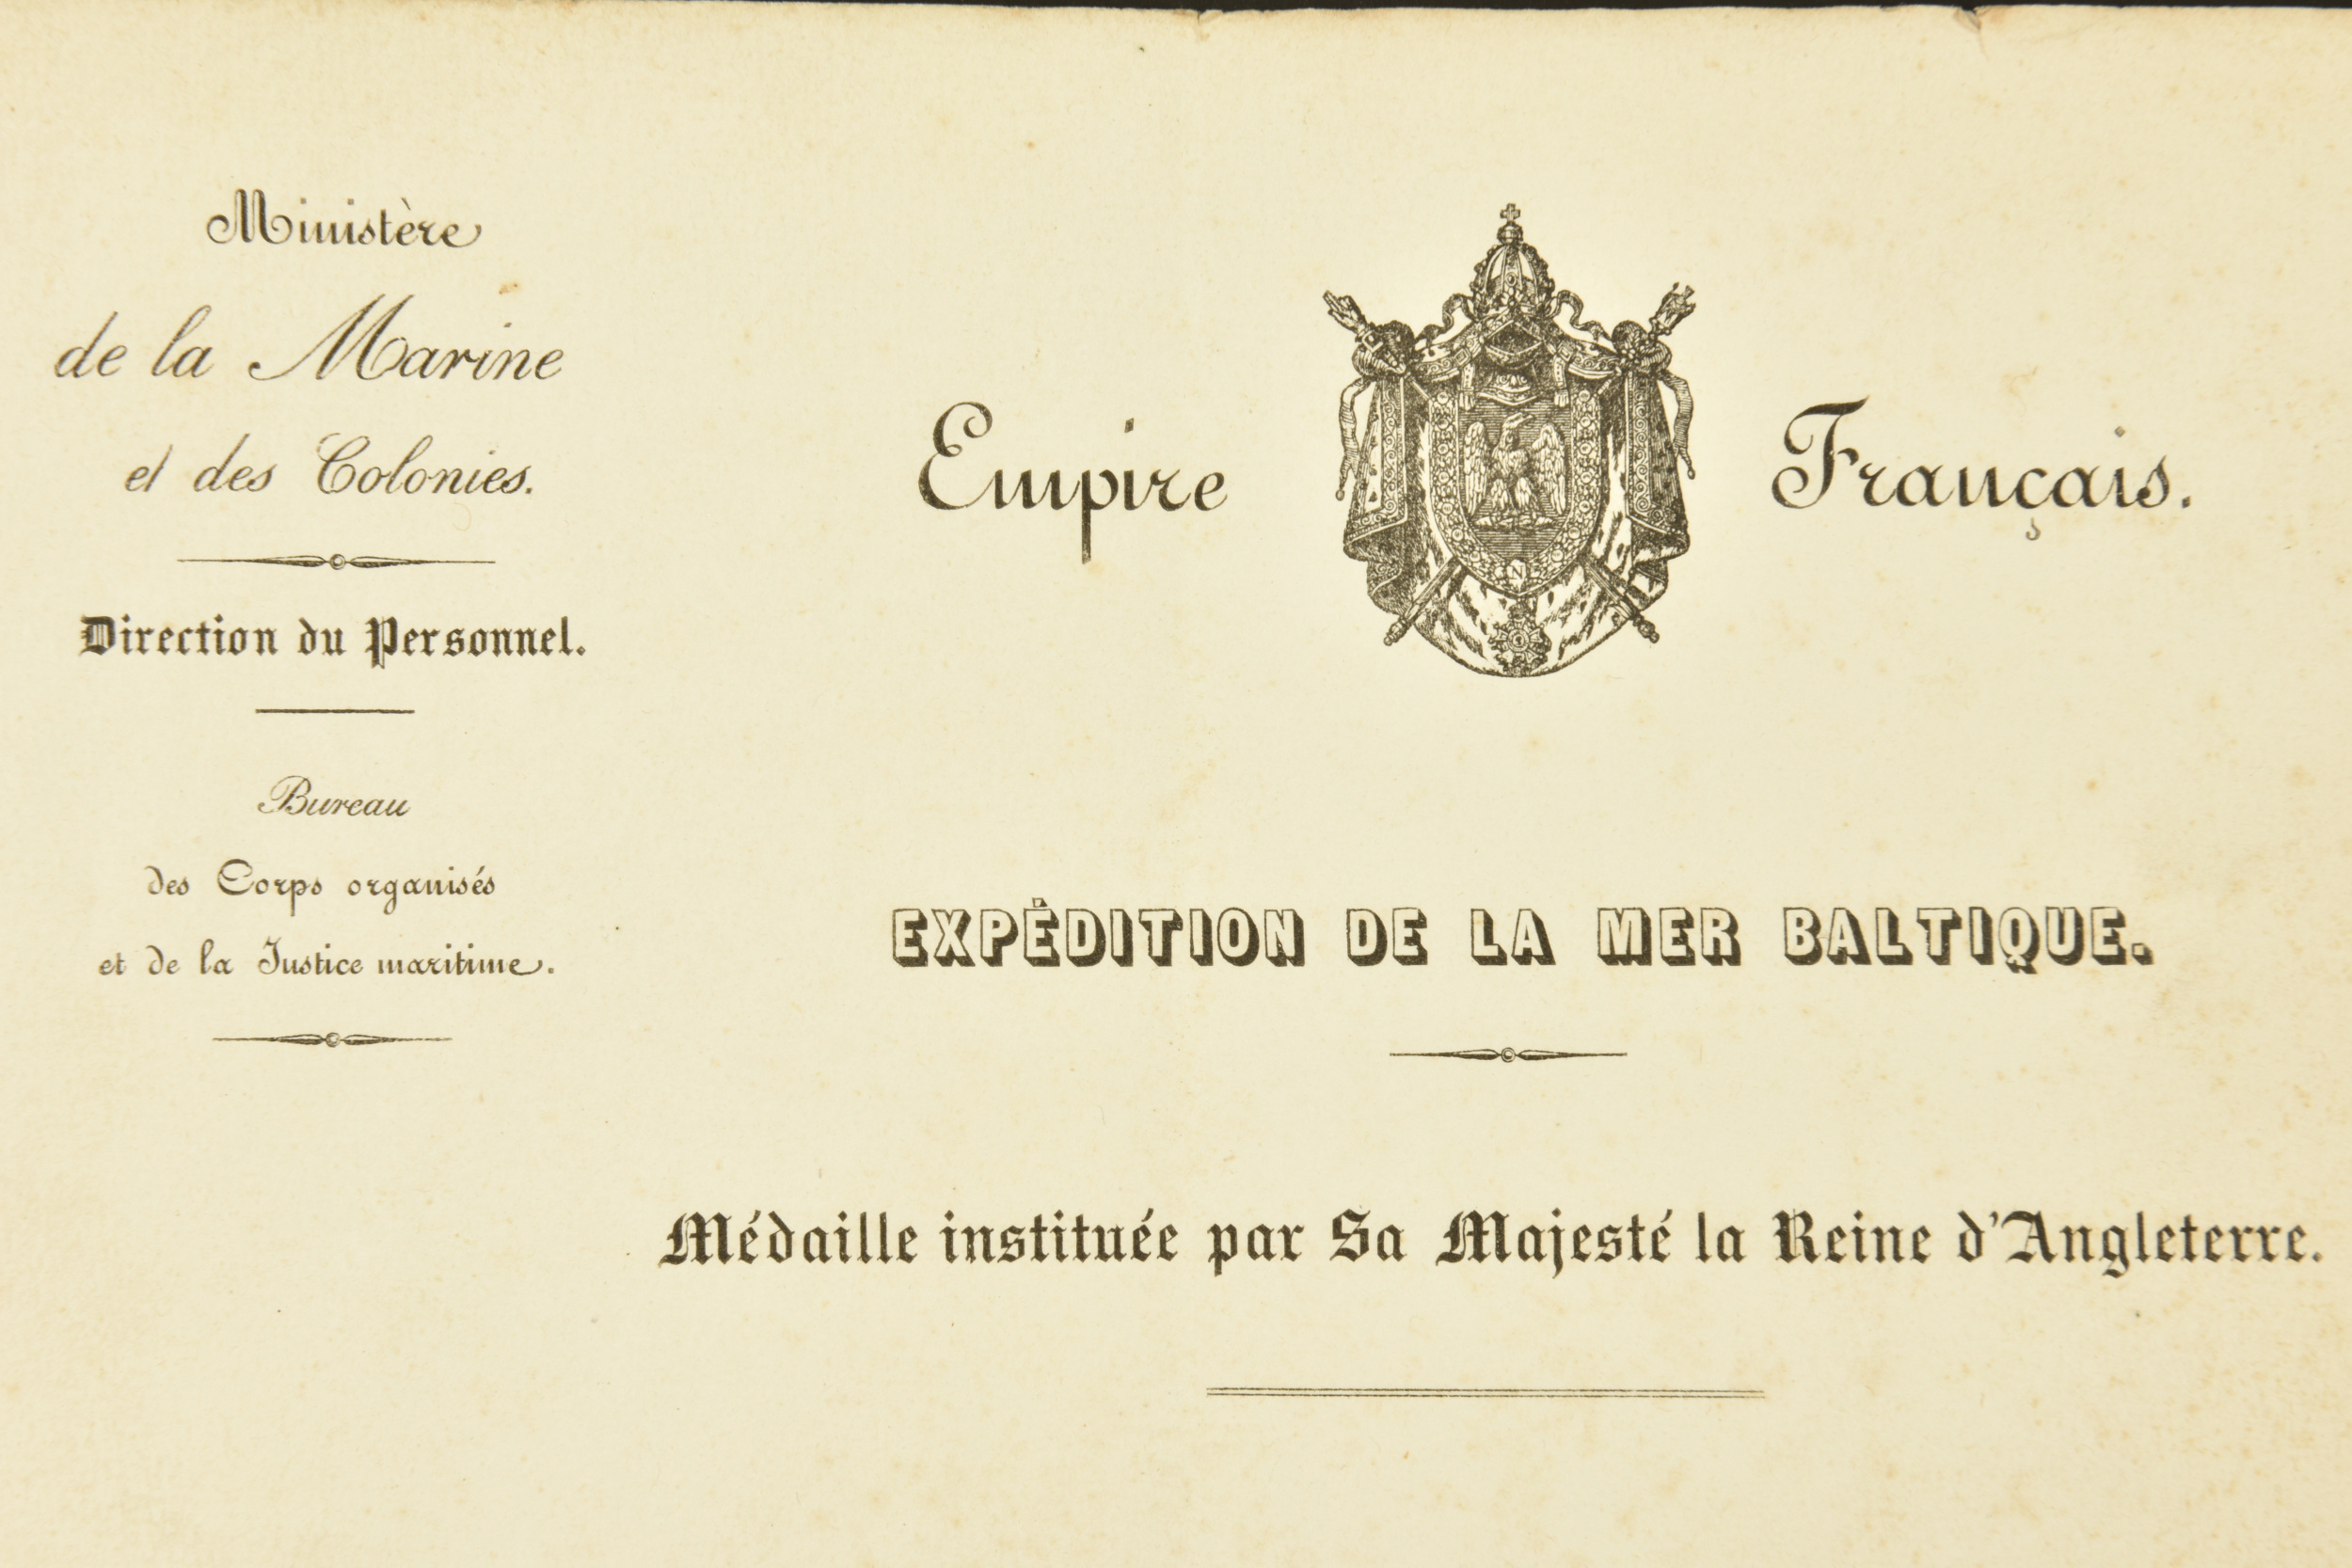 Ministère
de la Marine
et des Colonies.
Direction du Personnel.
Bureau
des Corps organisés
et de la Justice maritime.
Empire Français.
N
EXPÉDITION DE LA MER BALTIQUE.
Médaille instituée par Sa Majesté la Reine d'Angleterre.